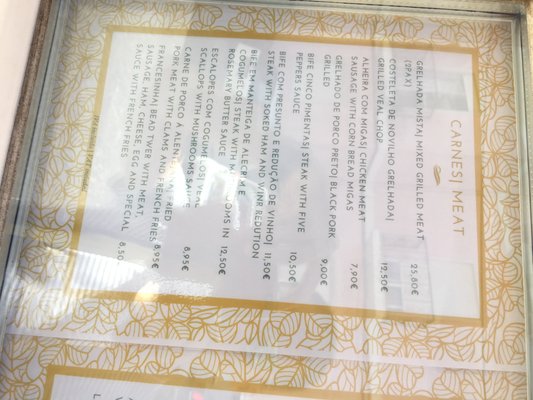 CARNES| MEAT
GRELHADA MISTA| MIXED GRILLED MEAT
(2PAX) 25,80€
COSTELETA DE NOVILHO GRELHADA|
GRILLED VEAL CHOP 12,50€
ALHEIRA COM MIGAS| CHICKEN MEAT
SAUSAGE WITH CORN BREAD MIGAS 7,90€
GRELHADO DE PORCO PRETO| BLACK PORK
GRILLED 9,00€
BIFE CINCO PIMENTAS| STEAK WITH FIVE
PEPPERS SAUCE 10,50€
BIFE COM PRESUNTO E REDUÇÃO DE VINHO|
STEAK WITH SOKED HAM AND WINE REDUTION 11,50€
BIFE EM MANTEIGA DE ALECRIM E
COGUMELOS| STEAK WITH IN
ROSEMARY BUTTER SAUCE 12,50€
ESCALOPES COM COGUMELOS| VEAL
SCALLOPS WITH MUSHROOMS SAUCE 8,95€
CARNE DE PORCO À FRIED
PORK MEAT WITH CLAMS AND FRENCH FRIES 8,95€
FRANCESINHA| BEAD TWER WITH MEAT,
SAUSAGE HAM, CHEESE, EGG AND SPECIAL
SAUCE WITH FRENCH FRIES 8,50